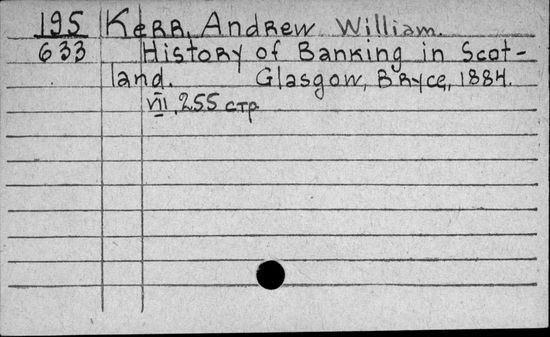 195 Kerr, Andrew William.
633 History of Banking in Scot-
land. Glasgow, Bryce, 1884.
VII, 255 стр